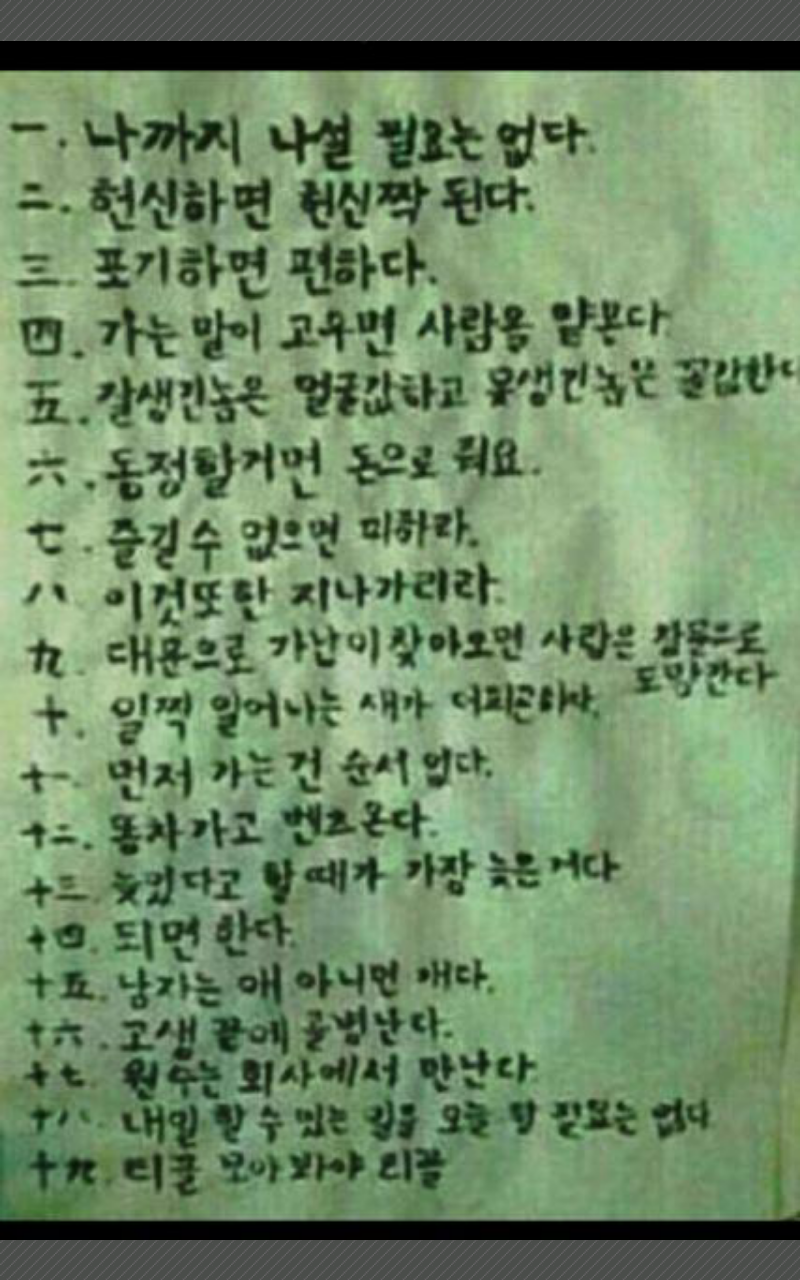 一. 나까지 나설 필요는 없다.
二. 헌신하면 헌신짝 된다.
三. 포기하면 편하다.
四. 가는말이 고우면 사람을 얕본다
五. 잘생긴놈은 얼굴값하고 못생긴놈은 꼴값한다
六. 동정할거면 돈으로 줘요.
七. 즐길수 없으면 피하라.
八. 이것또한 지나가리라.
九. 대문으로 가난이찾아오면 사랑은 창문으로
도망간다
十. 일찍 일어나는 새가 더피곤하다.
十一. 먼저 가는건 순서 없다.
十二. 똥차가고 벤츠온다.
十三. 늦었다고 할때가 가장 늦은거다
十四. 되면 한다.
十五. 남자는 애 아니면 개다.
十六. 고생 끝에 골병난다.
十七. 원수는 회사에서 만난다
十八. 내일 할 수 있는 일을 오늘 할 필요는 없다
十九. 티끌 모아봐야 티끌